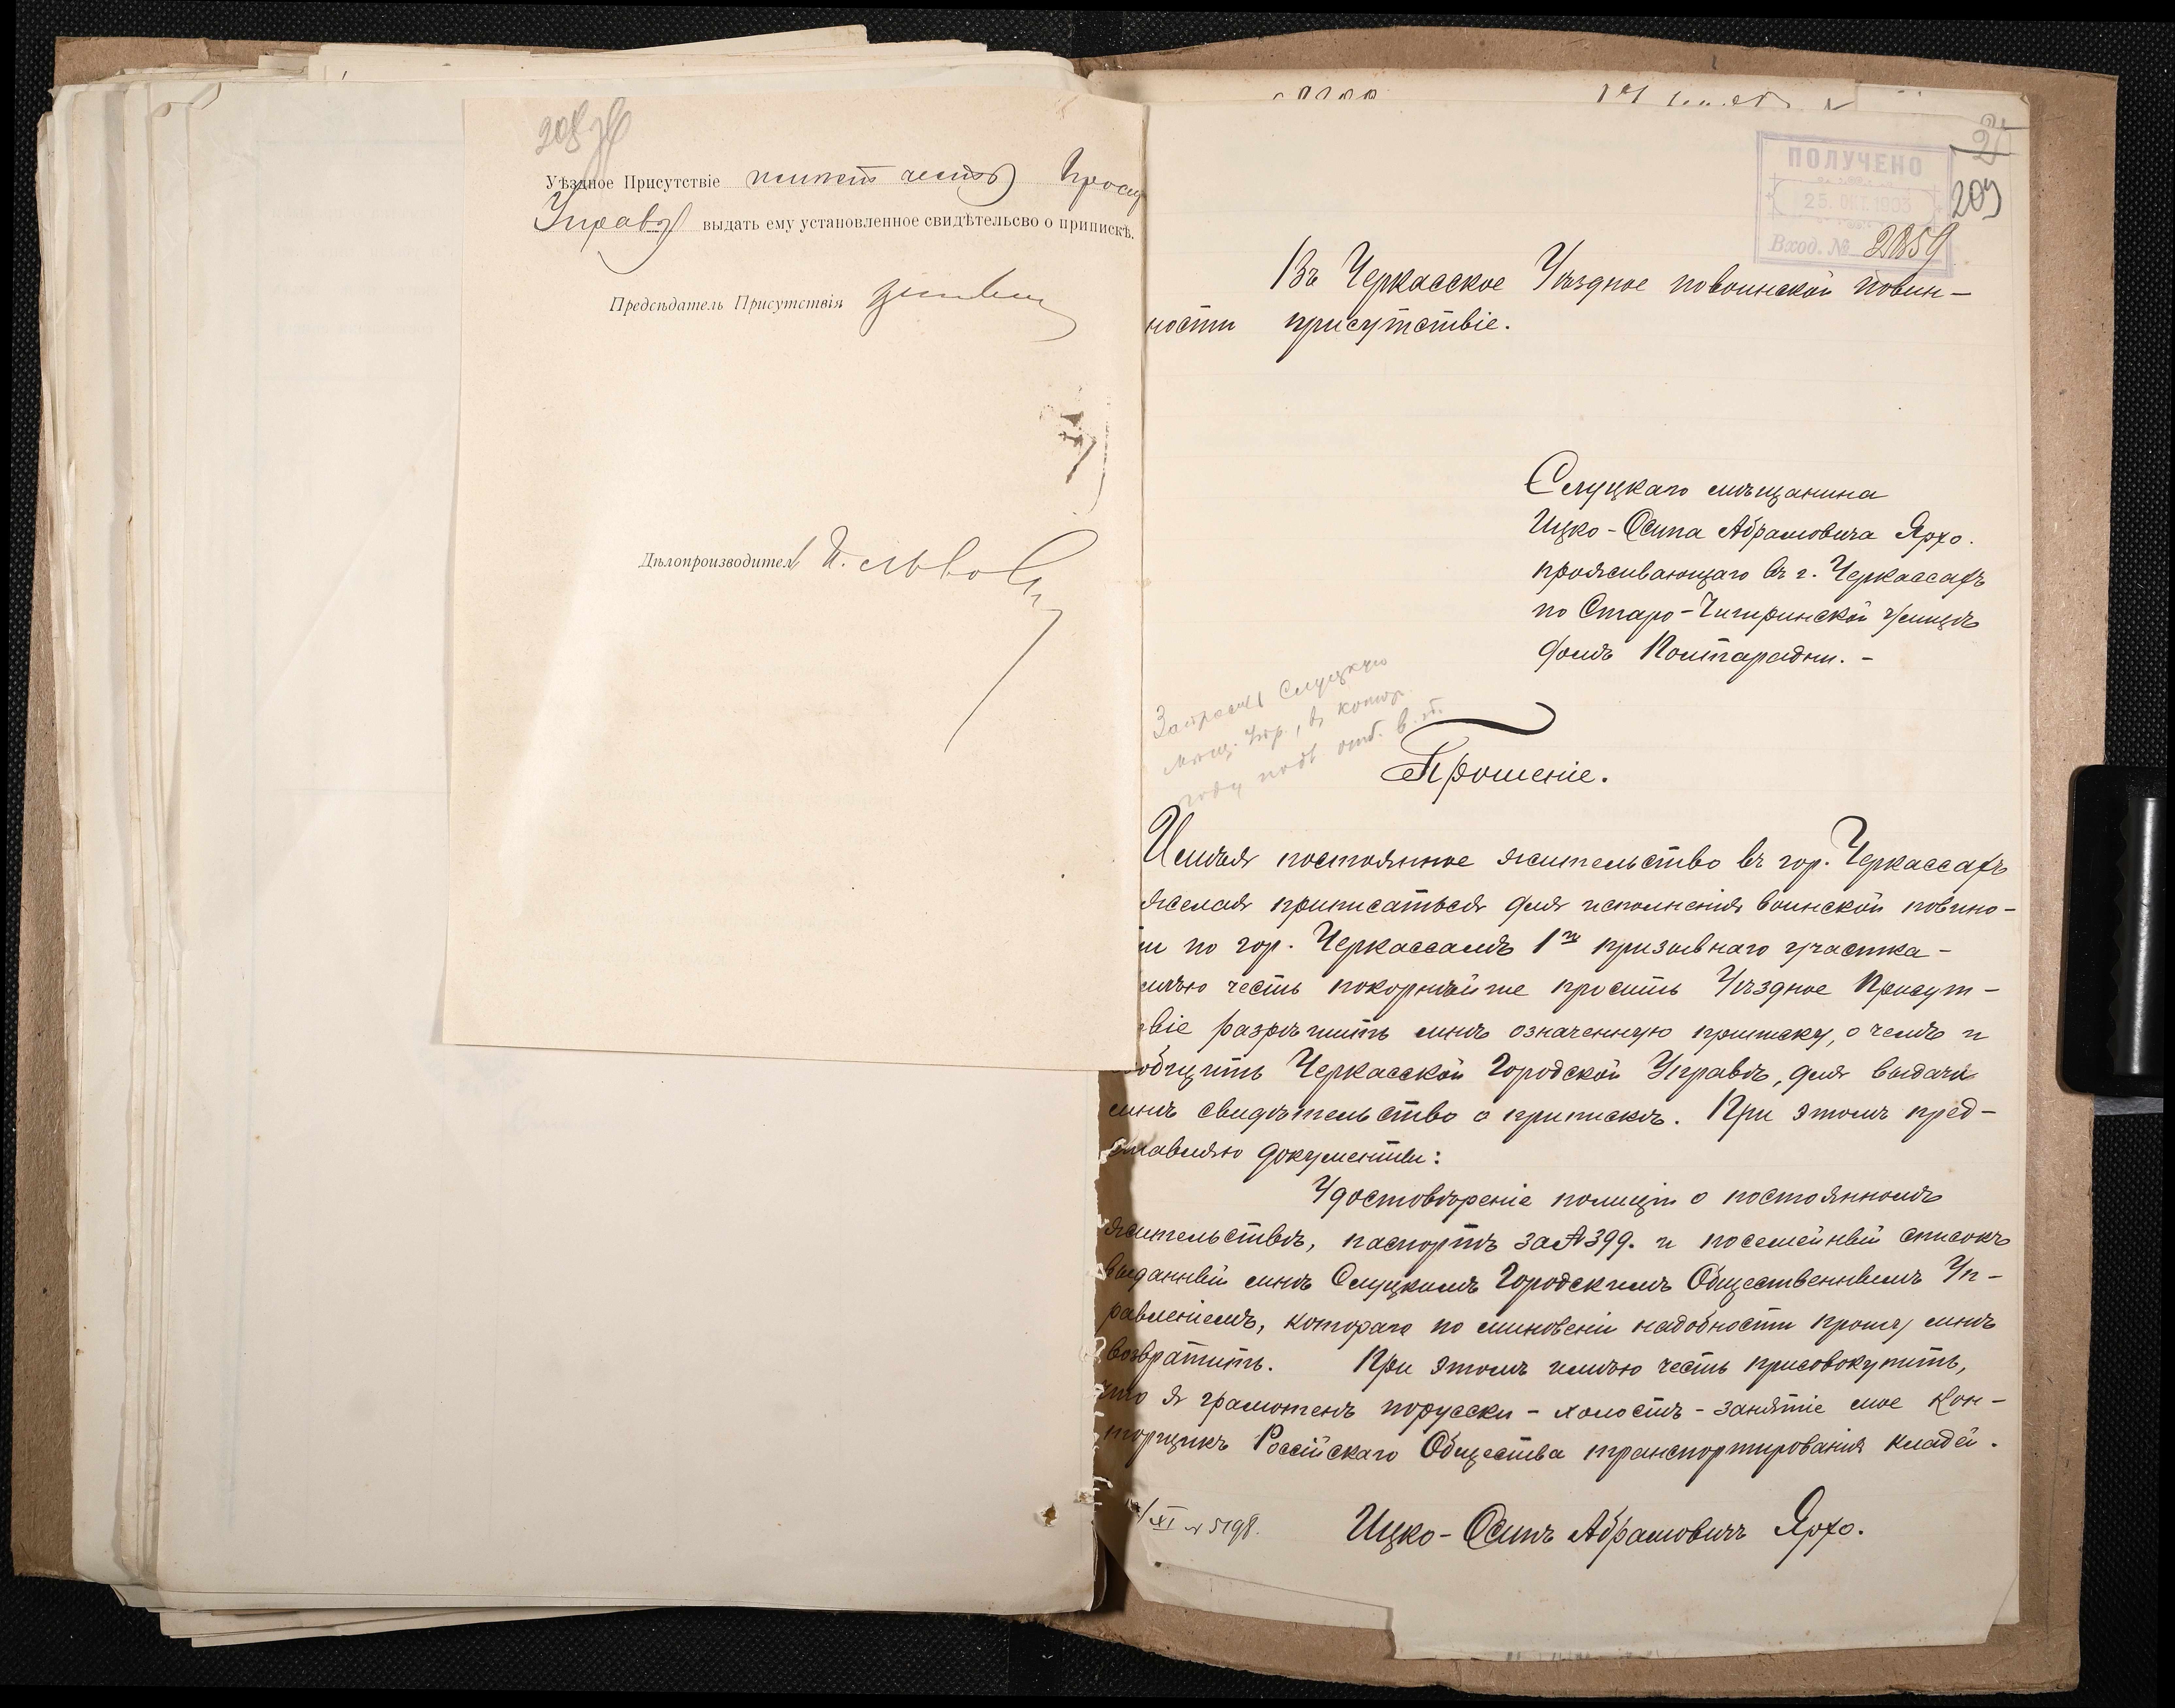 208 об
Уѣздное Присутствіе имѣетъ честь просить
Управу выдать ему установленное свидѣтельсво о припискѣ.
Предсѣдатель Присутствія
Дѣлопроизводитель
ПОЛУЧЕНО
25. ОКТ. 1903
Вход. № 2859
209
Въ Черкасское Уѣздное повоинской повин-
ности присутствіе.
Слуцкаго мѣщанина
Ицко-Осипа Абрамовича Ярхо.
проживающаго въ г. Черкассахъ
по Старо-Чигиринской улицѣ
домъ
Запросить Слуцкую
мѣщ. Упр., въ котор.
году отб. в. п.
Прошеніе.
Имѣя постоянное жительство въ гор. Черкассахъ
желая приписаться для исполненія воинской повино-
ти по гор. Черкассамъ 1го призывнаго участка-
имѣю честь покорнѣйше просить Уѣздное Присут-
твіе разрѣшить мнѣ означенную приписку, о чемъ и
сообщить Черкасской Городской Управѣ, для выдачи
мнѣ свидѣтельство о припискѣ. При этомъ пред-
ставляю документы:
Удостовѣреніе полиціи о постоянномъ
жительствѣ, паспортъ за № 399. и посемейный списокъ
выданный мнѣ Слуцкимъ Городскимъ Общественнымъ Уп-
равленіемъ, котораго по миновеніи надобности прошу мнѣ
возвратить. При этомъ имѣю честь присовокупить,
что я грамотенъ порусски - холостъ - занятіе мое кон-
торщикъ Россійскаго Общества транспортированія кладей.
/XI № 5198.
Ицко-Осипъ Абрамовичъ Ярхо.